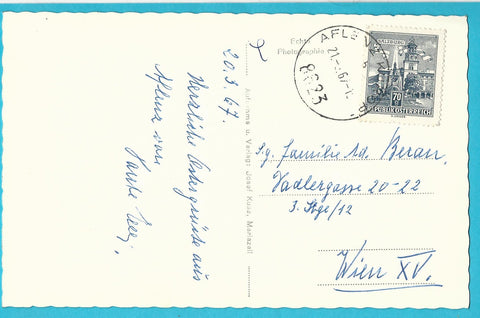 20.3.67.
Herzliche Ostergrüße aus
Aflenz von
Tante
Echte
Photographie
Aufnahme u. Verlag: Josef Kuss, Mariazell
AFLENZ
21.-3.67-
8623
SALZBURG
70
REPUBLIK ÖSTERREICH
Sg. Familie Ad. Beran
Vadlergasse 20-22
3. Stge/12
Wien XV.